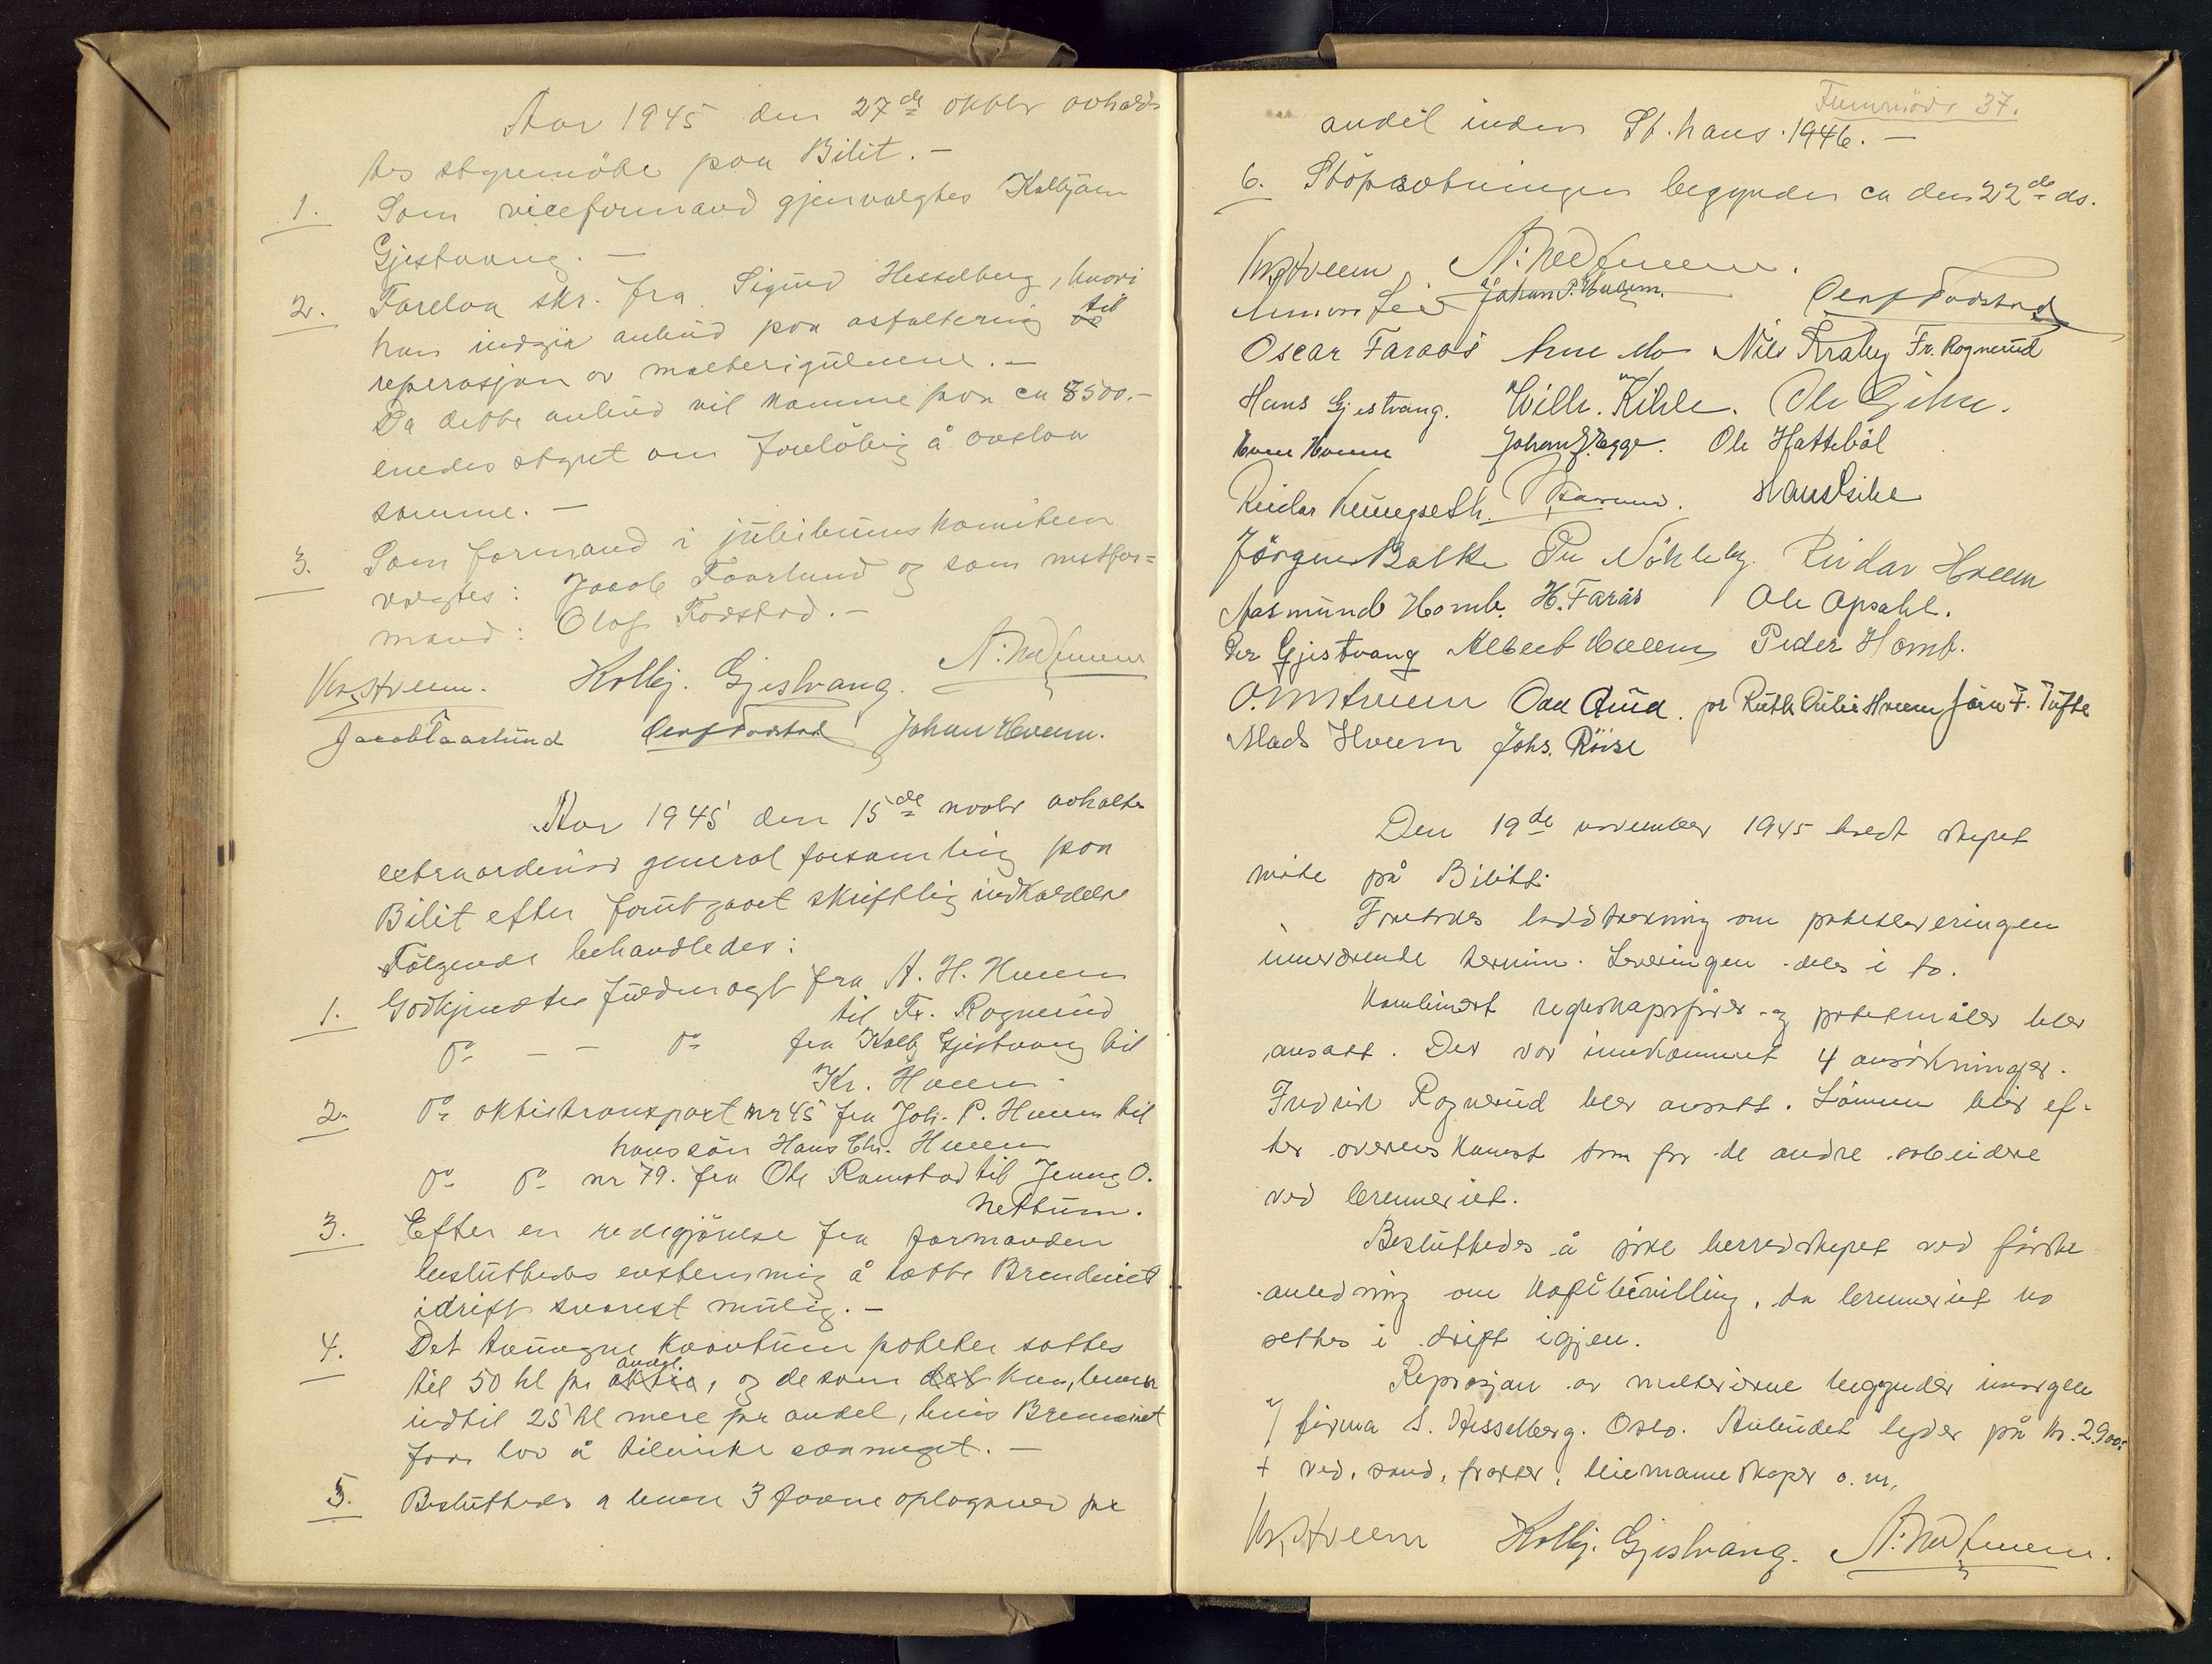 Aar 1945 den 27de oktbr avhold-
tes styremöte paa Bilit. —
1. Som viceformand gjenvalgtes Kolbjörn
Gjestvang. —
2. Forelaa skr. fra Sigurd Hesselberg, hvori
han indgir anbud paa asfaltering til
reperasjon av malterigulvene. —
Da dette anbud vil komme paa ca 8500.-
enedes styret om foreløbig å avslaa
samme. —
3. Som formand i jubileumskomiteen
valgtes: Jacob Faarlund og som nestfor=
mand: Olaf Fodstad. —
Kr. Hveem. Kolbj. Gjestvang. A. Nedhveem
Jacob Faarlund Olaf Fodstad Johan Hveem.
Aar 1945 den 15de novbr avholdtes
extraordinær general forsamling paa
Bilit efter forutgaaet skriftlig indkaldelse
Følgende behandledes:
1. Godkjendtes fuldmagt fra A. H. Hveem
til Fr. Rognerud
Do — — Do fra Kolbj Gjestvang til
Kr. Hveem.
2. Do aktietransport nr 45 fra Joh. P. Hveem til
hans sön Hans Chr. Hveem
Do Do nr 79. fra Ole Ramstad til Jenny O.
Nettum.
3. Efter en redegjörelse fra formanden
besluttedes enstemmig å sætte Brenderiet
idrift snarest mulig. —
4. Det tvungne kvantum poteter sattes
andel.
til 50 hl pr aktie, og de som det kan, levere
indtil 25 hl mere pr andel, hvis Brenneriet
faar lov å tilvirke saa meget. —
5. Besluttedes a levere 3 favne oplagsved pr
Furumöve 37.
andel inden St. hans 1946. —
6. Stöpsætningen begynder ca den 22de ds.
Kr. Hveem. A. Nedhveem.
Johan P. Hveem. Olaf Fodstad
Oscar Faraas Arne Mo Nils Kraby Fr. Rognerud
Hans Gjestvang. Wilh. Kihle. Ole Gihle.
Johan Skjegge. Ole Hattebøl
Reidar Kongseth. Hans Gihle
Jörgen Balke Per Nökleby Reidar Hveem
Aasmund Homb. H. Farås Ole Opsahl.
Per Gjestvang Albert Hveem Peder Homb.
O. M. Hveem Odd Rud. pr Ruth Julie Hveem Jörn F. Tufte
Mads Hveem Johs. Röise
Den 19de november 1945 holdt styret
möte på Bilitt.
Foretokes loddtrekning om potetleveringen
inneværende termin. Leveringen deles i to.
Kombinert regnskapsförer og potetmåler blev
ansatt. Der var innkommet 4 ansökninger.
Fredrik Rognerud blev ansatt. Lönnen blir ef-
ter overenskomst som for de andre arbeidere
ved brenneriet.
Besluttedes å söke herredstyret ved förste
anledning om kafébevilling, da brenneriet no
settes i drift igjen.
Reprasjon av malteriene begynder imorgen
v/ firma S. Hesselberg. Oslo. Anbudet lyder på kr. 2900.-
+ ved, sand, frakter, leiemannskaper o. m.
Kr. Hveem Kolbj. Gjestvang. A. Nedhveem.